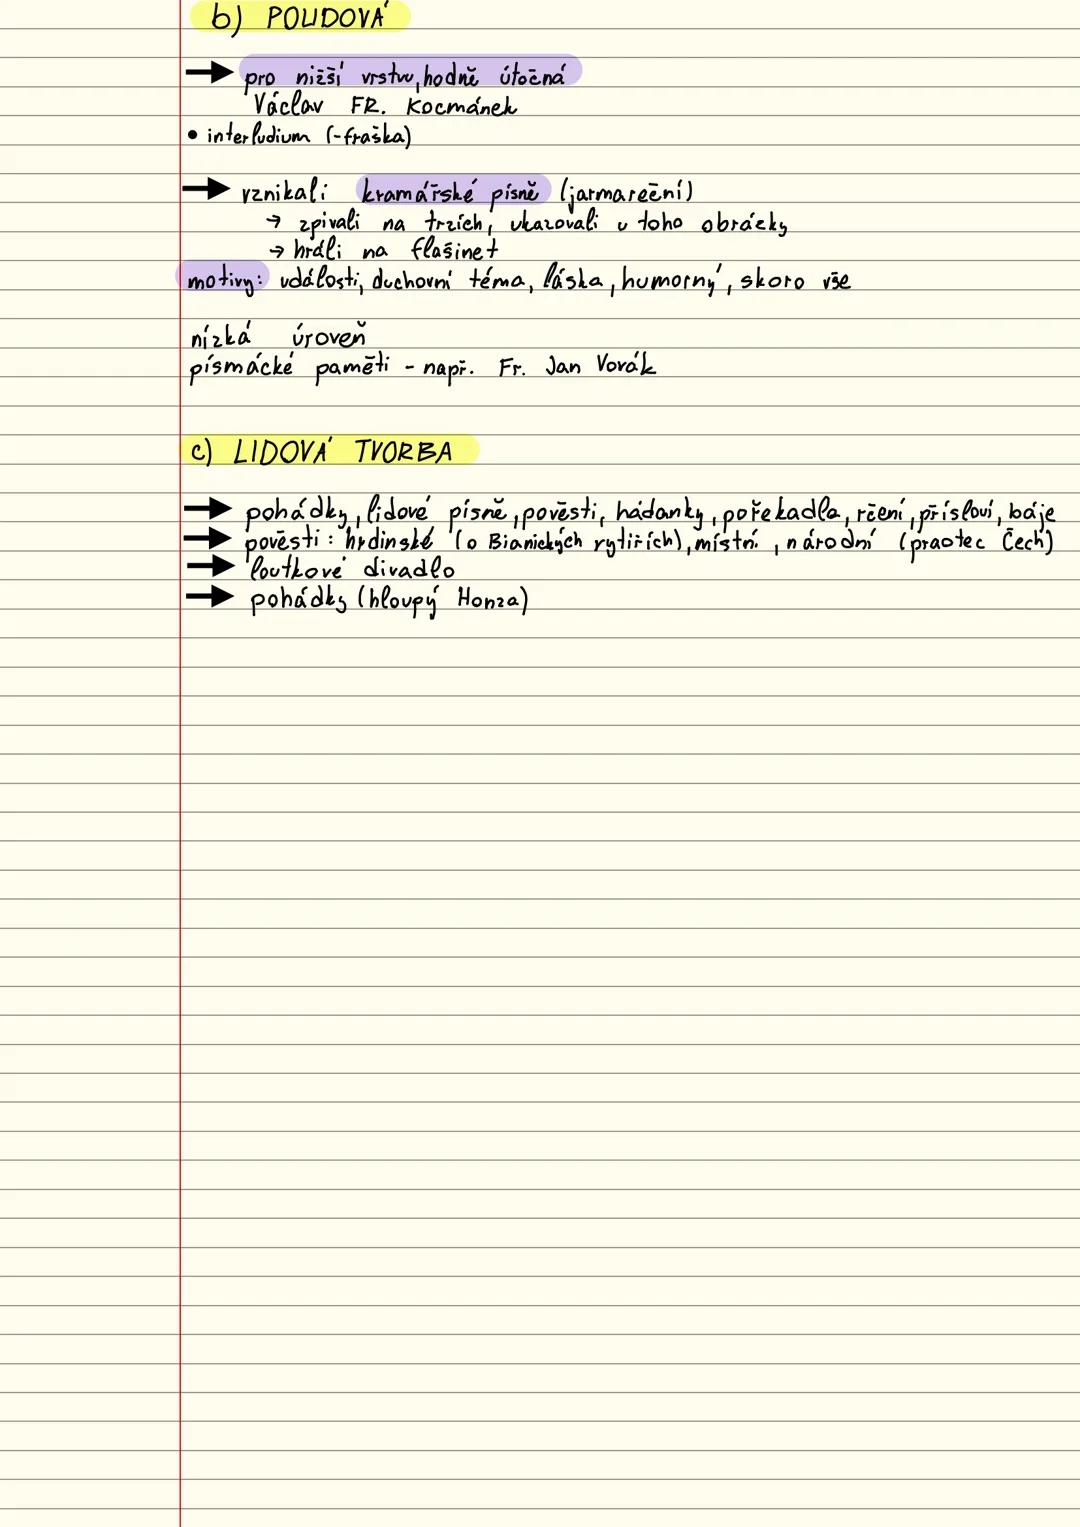 b) POLIDOVÁ
→ pro nizší vrstvu, hodně útočná
Václav FR. Kocmánek
• interludium (-fraška)
→ vznikali kramářské písně (jarmareční)
→ zpívali na trzích, ukazovali u toho obrázky
→ hráli na flašinet
motivy: události, duchovní téma, láska, humorný, skoro vše
nízká úroveň
písmácké paměti - např. Fr. Jan Vorák
c) LIDOVÁ TVORBA
→ pohádky, lidové písně, pověsti, hádanky, pořekadla, rčení, přísloví, báje
→ pověsti: hrdinské (o Blanických rytířích), místní, národní (praotec Čech)
→ loutkové divadlo
→ pohádky (hloupý Honza)